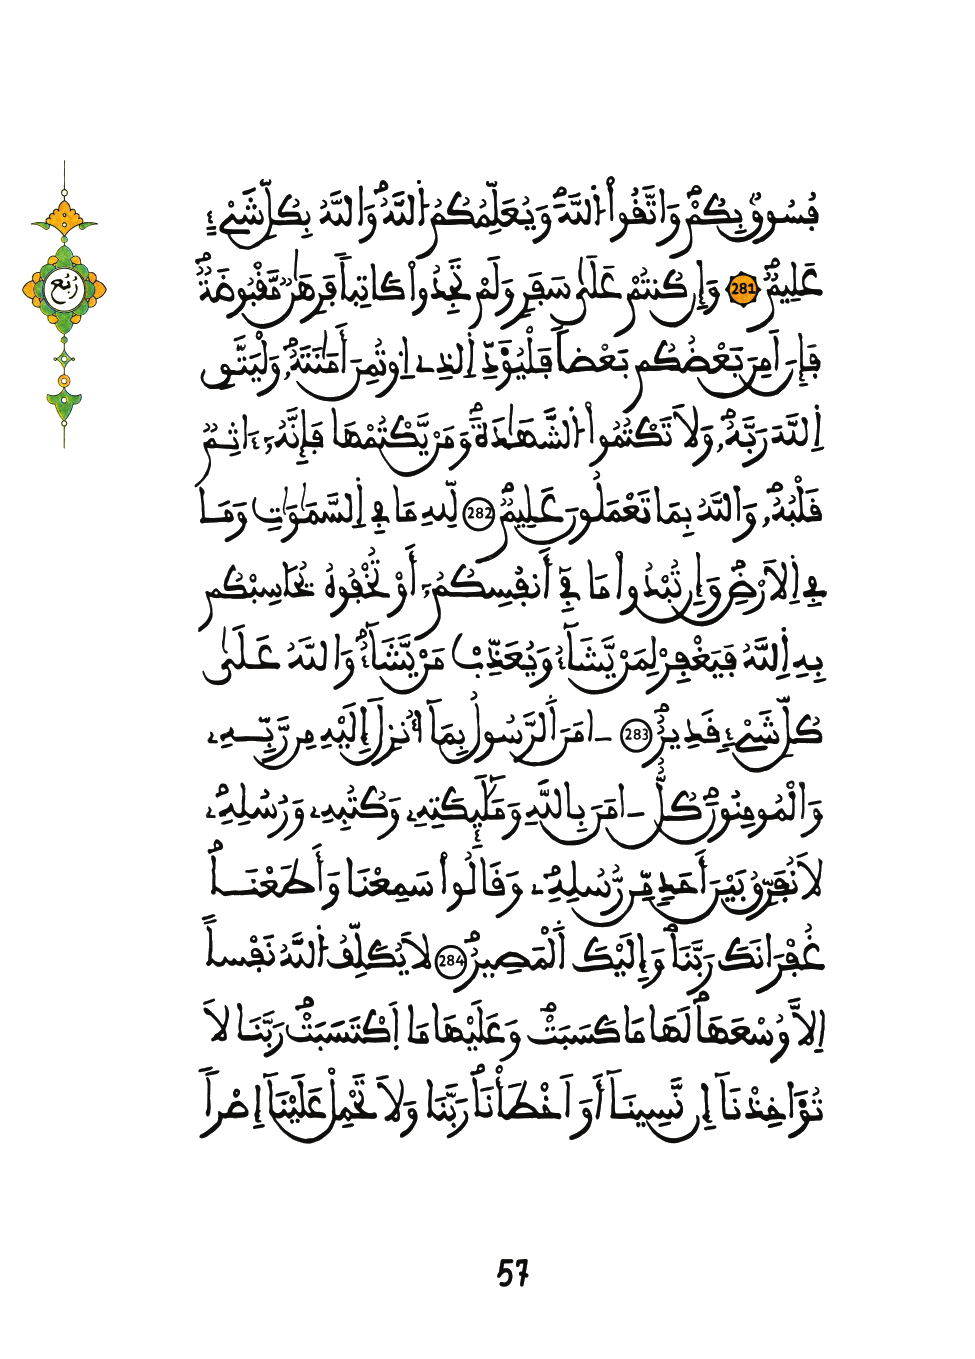 ربع
فُسُوقٌۢ بِكُمْۖ وَاتَّقُواْ اُ۬للَّهَۖ وَيُعَلِّمُكُمُ اُ۬للَّهُۖ وَاللَّهُ بِكُلِّ شَےْءٍ
عَلِيمٞۖ 281 وَإِن كُنتُمْ عَلَىٰ سَفَرٖ وَلَمْ تَجِدُواْ كَاتِباٗ فَرِهَٰنٞ مَّقْبُوضَةٞۖ
فَإِنَ اَمِنَ بَعْضُكُم بَعْضاٗ فَلْيُؤَدِّ اِ۬لذِے اِ۟وتُمِنَ أَمَٰنَتَهُۥۖ وَلْيَتَّقِ
اِ۬للَّهَ رَبَّهُۥۖ وَلَا تَكْتُمُواْ اُ۬لشَّهَٰدَةَۖ وَمَنْ يَّكْتُمْهَا فَإِنَّهُۥٓ ءَاثِمٞ
قَلْبُهُۥۖ وَاللَّهُ بِمَا تَعْمَلُونَ عَلِيمٞۖ 282 لِّلهِ مَا فِے اِ۬لسَّمَٰوَٰتِ وَمَا
فِے اِ۬لَارْضِۖ وَإِن تُبْدُواْ مَا فِےٓ أَنفُسِكُمُۥٓ أَوْ تُخْفُوهُ يُحَاسِبْكُم
بِهِ اِ۬للَّهُ فَيَغْفِرْ لِمَنْ يَّشَآءُ وَيُعَذِّب مَّنْ يَّشَآءُۖ وَاللَّهُ عَلَىٰ
كُلِّ شَےْءٖ قَدِيرٌۖ 283 ـ اٰمَنَ اَ۬لرَّسُولُ بِمَآ أُنزِلَ إِلَيْهِ مِن رَّبِّهِۦ
وَالْمُومِنُونَۖ كُلٌّ ـ اٰمَنَ بِاللَّهِ وَمَلَٰٓئِكَتِهِۦ وَكُتُبِهِۦ وَرُسُلِهِۦۖ
لَا نُفَرِّقُ بَيْنَ أَحَدٖ مِّن رُّسُلِهِۦۖ وَقَالُواْ سَمِعْنَا وَأَطَعْنَاۖ
غُفْرَانَكَ رَبَّنَاۖ وَإِلَيْكَ اَ۬لْمَصِيرُۖ 284 لَا يُكَلِّفُ اُ۬للَّهُ نَفْساً
اِلَّا وُسْعَهَاۖ لَهَا مَا كَسَبَتْۖ وَعَلَيْهَا مَا اَ۪كْتَسَبَتْۖ رَبَّنَا لَا
تُؤَاخِذْنَآ إِن نَّسِينَآ أَوَ اَخْطَأْنَاۖ رَبَّنَا وَلَا تَحْمِلْ عَلَيْنَآ إِصْراٗ
57